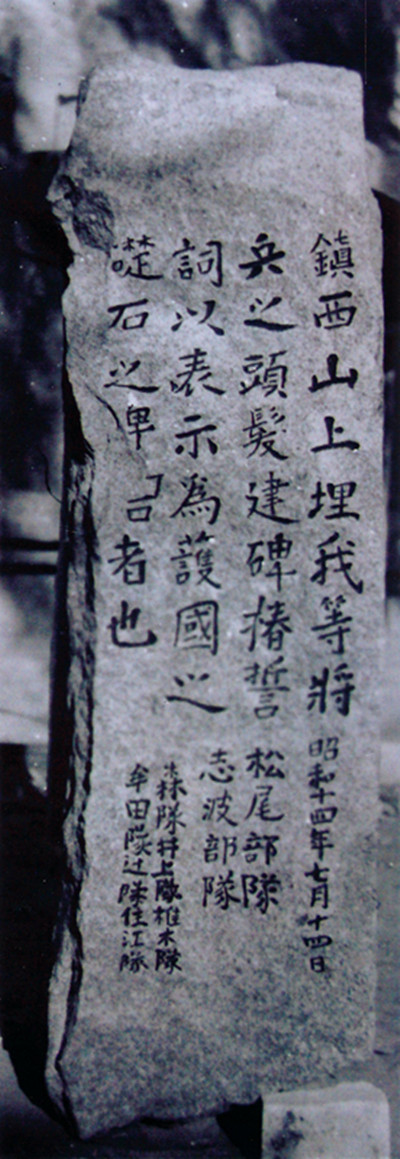 鎮西山上埋我等將
兵之頭髮建碑椿誓
詞以表示爲護國之
礎石之卑者也
昭和十四年七月十四日
松尾部隊
志波部隊
森隊井上隊椎木隊
牟田隊辻隊住江隊